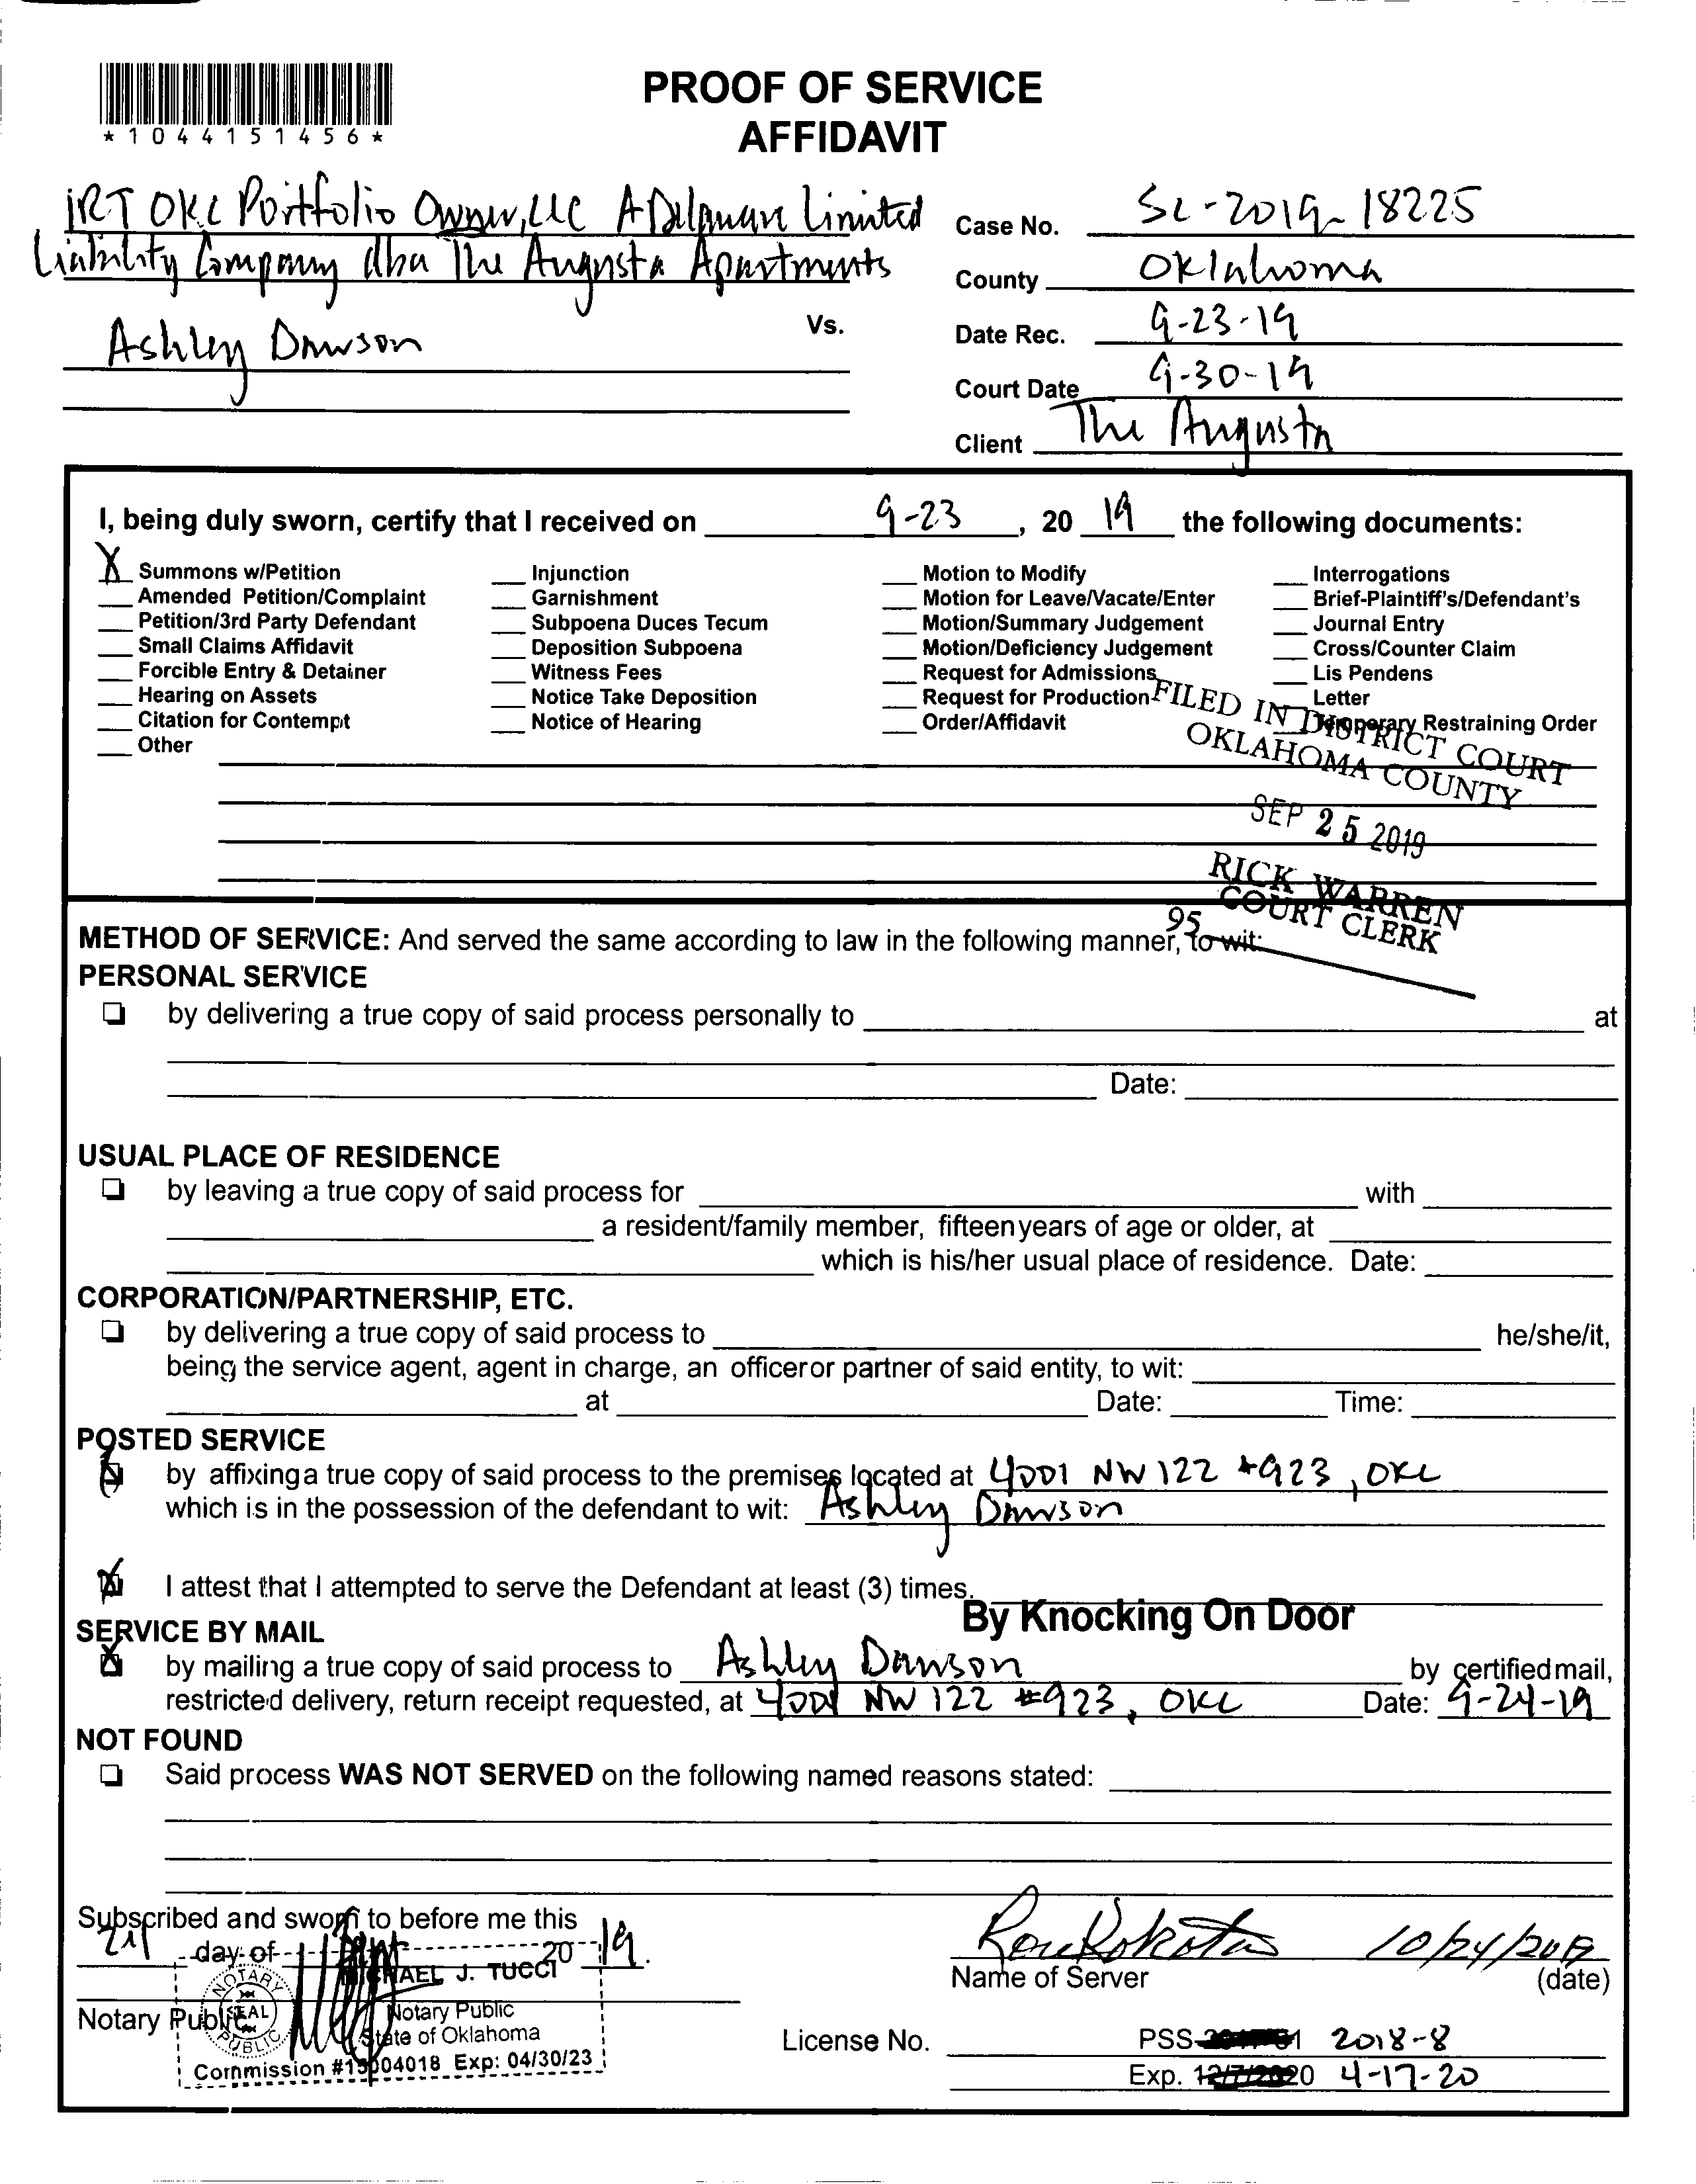 *1044151456*
PROOF OF SERVICE
AFFIDAVIT
IRT OKC Portfolio Owner, LLC A Delaware Limited
Liability Company dba The Augusta Apartments
Vs.
Ashley Dawson
Case No. SC-2019-18225
County Oklahoma
Date Rec. 9-23-19
Court Date 9-30-19
Client The Augusta
I, being duly sworn, certify that I received on 9-23, 20 19 the following documents:
X Summons w/Petition
Amended Petition/Complaint
Petition/3rd Party Defendant
Small Claims Affidavit
Forcible Entry & Detainer
Hearing on Assets
Citation for Contempt
Other
Injunction
Garnishment
Subpoena Duces Tecum
Deposition Subpoena
Witness Fees
Notice Take Deposition
Notice of Hearing
Motion to Modify
Motion for Leave/Vacate/Enter
Motion/Summary Judgement
Motion/Deficiency Judgement
Request for Admissions
Request for Production
Order/Affidavit
Interrogations
Brief-Plaintiff's/Defendant's
Journal Entry
Cross/Counter Claim
Lis Pendens
Letter
Temporary Restraining Order
FILED IN DISTRICT COURT
OKLAHOMA COUNTY
SEP 25 2019
RICK WARREN
COURT CLERK
95
METHOD OF SERVICE: And served the same according to law in the following manner, to wit:
PERSONAL SERVICE
by delivering a true copy of said process personally to at
Date:
USUAL PLACE OF RESIDENCE
by leaving a true copy of said process for with
a resident/family member, fifteen years of age or older, at
which is his/her usual place of residence. Date:
CORPORATION/PARTNERSHIP, ETC.
by delivering a true copy of said process to he/she/it,
being the service agent, agent in charge, an officer or partner of said entity, to wit:
at Date: Time:
POSTED SERVICE
by affixing a true copy of said process to the premises located at 4001 NW 122 #923, OKC
which is in the possession of the defendant to wit: Ashley Dawson
I attest that I attempted to serve the Defendant at least (3) times.
By Knocking On Door
SERVICE BY MAIL
by mailing a true copy of said process to Ashley Dawson by certified mail,
restricted delivery, return receipt requested, at 4001 NW 122 #923, OKC Date: 9-24-19
NOT FOUND
Said process WAS NOT SERVED on the following named reasons stated:
Subscribed and sworn to before me this
day of Sept 20 19.
Notary Public
MICHAEL J. TUCCI
Notary Public
State of Oklahoma
Commission #15004018 Exp: 04/30/23
NOTARY PUBLIC
SEAL
Name of Server
(date)
License No. PSS- 2018-8
Exp. 4-17-20